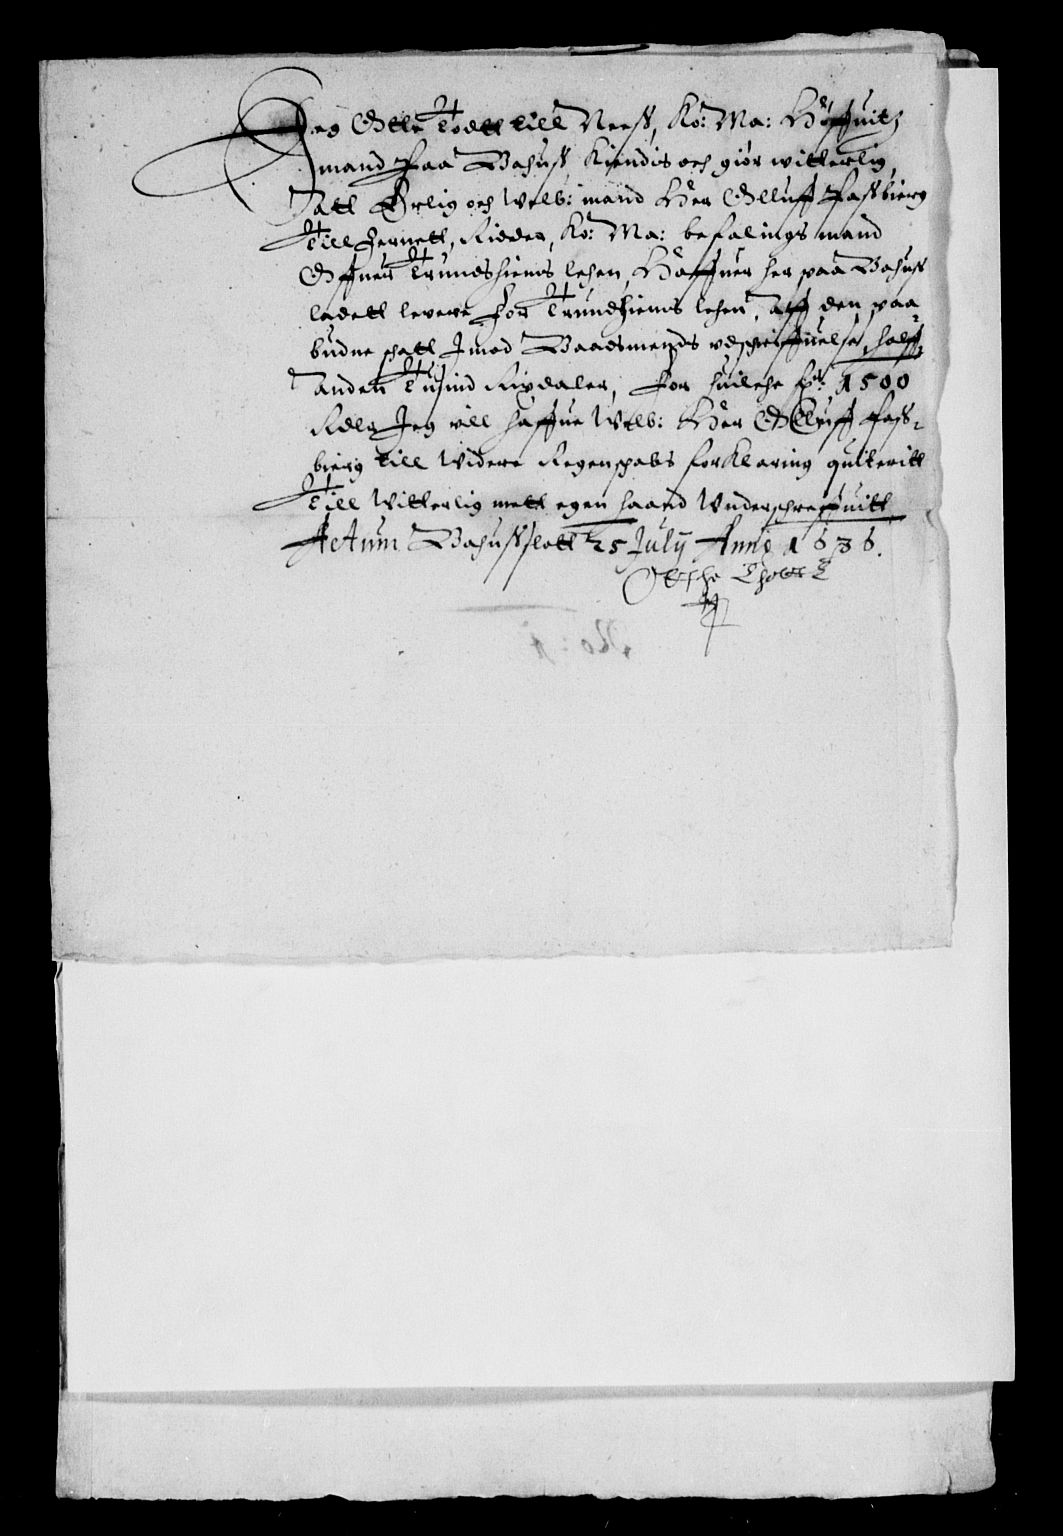 Jeg Otte Todtt till Neesß, Ko: Ma: Höffuitz
mand paa Bahuß Kiendis och giör witterlig,
att Erlig och Welb: mand Her Olluff Paßbierg
Till Jernett, Ridder, Ko: Ma: befalings mand
Offuer Trundhiems lehen, Haffuer her paa Bahuß
ladett levere for Trundhiems lehen, Aff den paa-
budne schatt Jmod Baadsmends vdschriffuelse, halff-
anden Tusind Rixdaler, for huilche sp: 1500
Rdlr Jeg vill haffue Welb: Her Olluff Paß-
bierg till Widere Regenschabs forklaring quiteritt
Till Witterlig mett egen haand Underschreffuitt
Actum Bahußslott 25 July Anno 1636.
Otthe Thott
No: 4